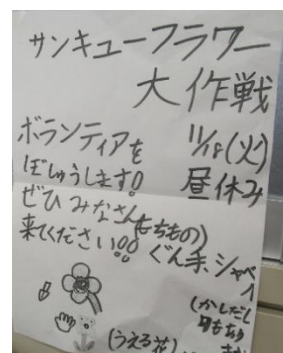 サンキューフラワー
大作戦
ボランティアを
ぼしゅうします!
ぜひみなさん
来てください!!
11/18(火)
昼休み
(もちもの)
ぐん手、シャベ
(かしだし
(うえる花)